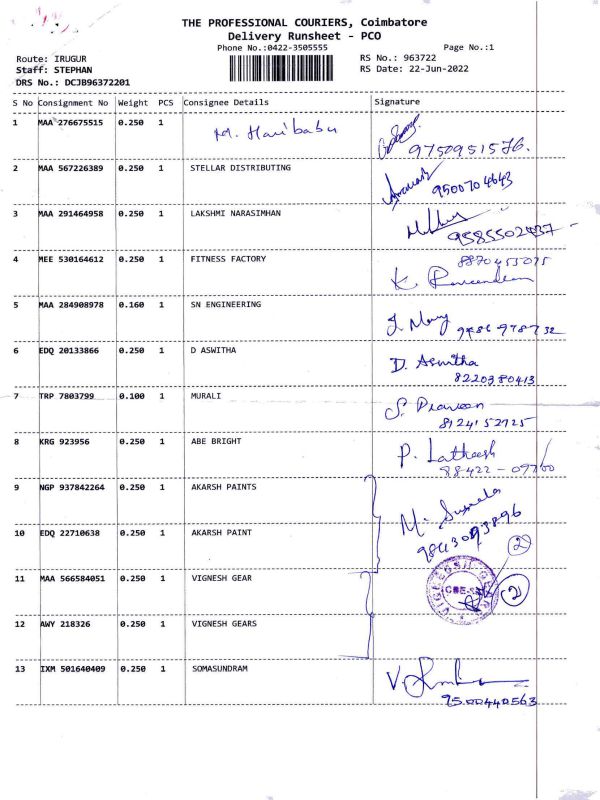 THE PROFESSIONAL COURIERS, Coimbatore
Delivery Runsheet - PCO
Phone No.:0422-3505555 Page No.:1
Route: IRUGUR RS No.: 963722
Staff: STEPHAN RS Date: 22-Jun-2022
DRS No.: DCJB96372201
S No Consignment No Weight PCS Consignee Details Signature
1 MAA 276675515 0.250 1 M. Haribabu
9750951576.
2 MAA 567226389 0.250 1 STELLAR DISTRIBUTING
9500704643
3 MAA 291464958 0.250 1 LAKSHMI NARASIMHAN
9585502437
4 MEE 530164612 0.250 1 FITNESS FACTORY 8870455075
K.
5 MAA 284908978 0.160 1 SN ENGINEERING
J. Mary
6 EDQ 20133866 0.250 1 D ASWITHA D. Aswitha
8220380413
7 TRP 7803799 0.100 1 MURALI S. Praveen
8124152725
8 KRG 923956 0.250 1 ABE BRIGHT P. Latheesh
88422-09760
9 NGP 937842264 0.250 1 AKARSH PAINTS M.
10 EDQ 22710638 0.250 1 AKARSH PAINT 9843093896
2
11 MAA 566584051 0.250 1 VIGNESH GEAR 2
12 AWY 218326 0.250 1 VIGNESH GEARS
13 IXM 501640409 0.250 1 SOMASUNDRAM V.
9500440563